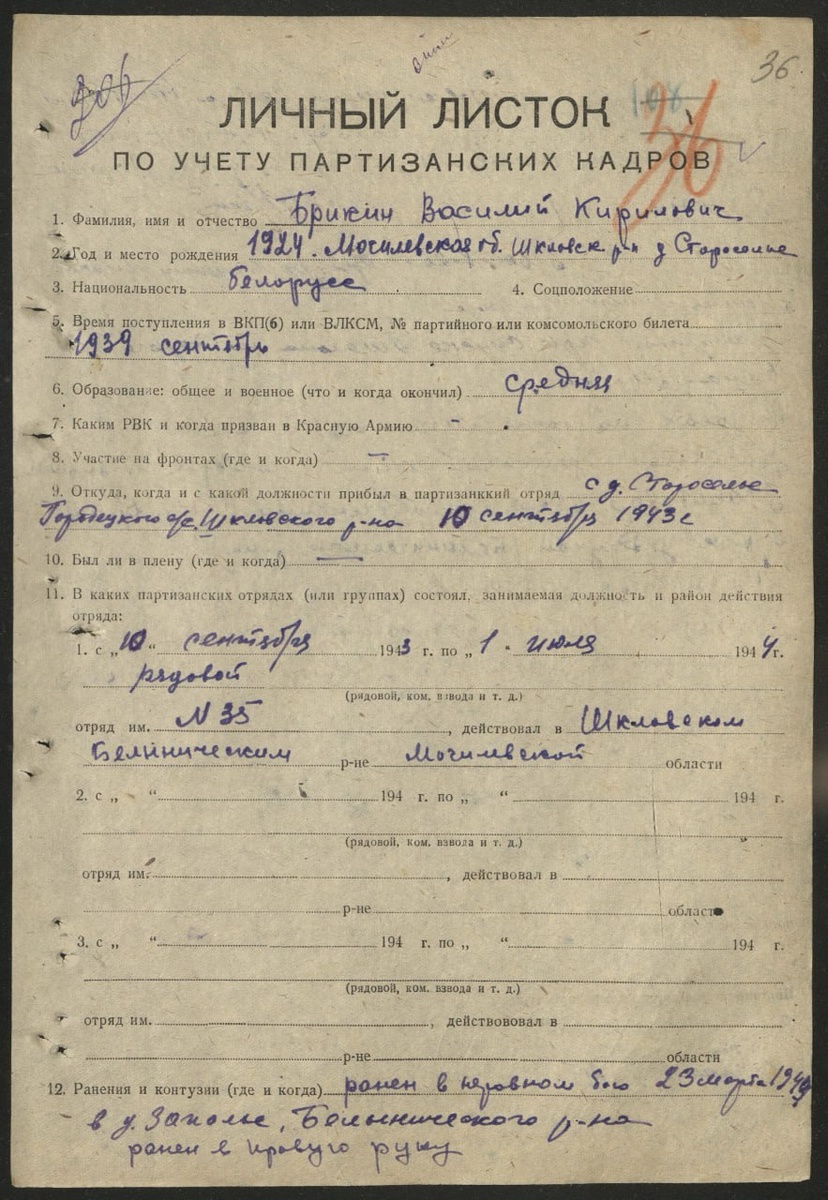 36.
206
ЛИЧНЫЙ ЛИСТОК
108
36
ПО УЧЕТУ ПАРТИЗАНСКИХ КАДРОВ
1. Фамилия, имя и отчество Брикин Василий Кирилович
2. Год и место рождения 1924. Могилевская об. Шкловск р-н д Староселье
3. Национальность белорусс 4. Соцположение
5. Время поступления в ВКП(б) или ВЛКСМ, № партийного или комсомольского билета
1939 сентябрь
6. Образование: общее и военное (что и когда окончил) средняя
7. Каким РВК и когда призван в Красную Армию -
8. Участие на фронтах (где и когда) —
9. Откуда, когда и с какой должности прибыл в партизанккий отряд с д. Староселье
Городецкого с/с. Шкловского р-на 10 сентября 1943 г
10. Был ли в плену (где и когда) —
11. В каких партизанских отрядах (или группах) состоял, занимаемая должность и район действия
отряда:
1. с „10“ сентября 1943 г. по „1. июля 1944 г.
рядовой
(рядовой, ком. взвода и т. д.)
отряд им. N 35, действовал в Шкловском
Белыническим р-не Могилевской области
2. с „ “ 194 г. по „ “ 194 г.
(рядовой, ком. взвода и т. д.)
отряд им. , действовал в
р-не области
3. с „ “ 194 г. по „ “ 194 г.
(рядовой, ком. взвода и т. д.)
отряд им. , действововал в
р-не области
12. Ранения и контузии (где и когда) ранен в неровном бою 23 марта 1944
в д. Заполье, Белынического р-на
ранен в правую руку